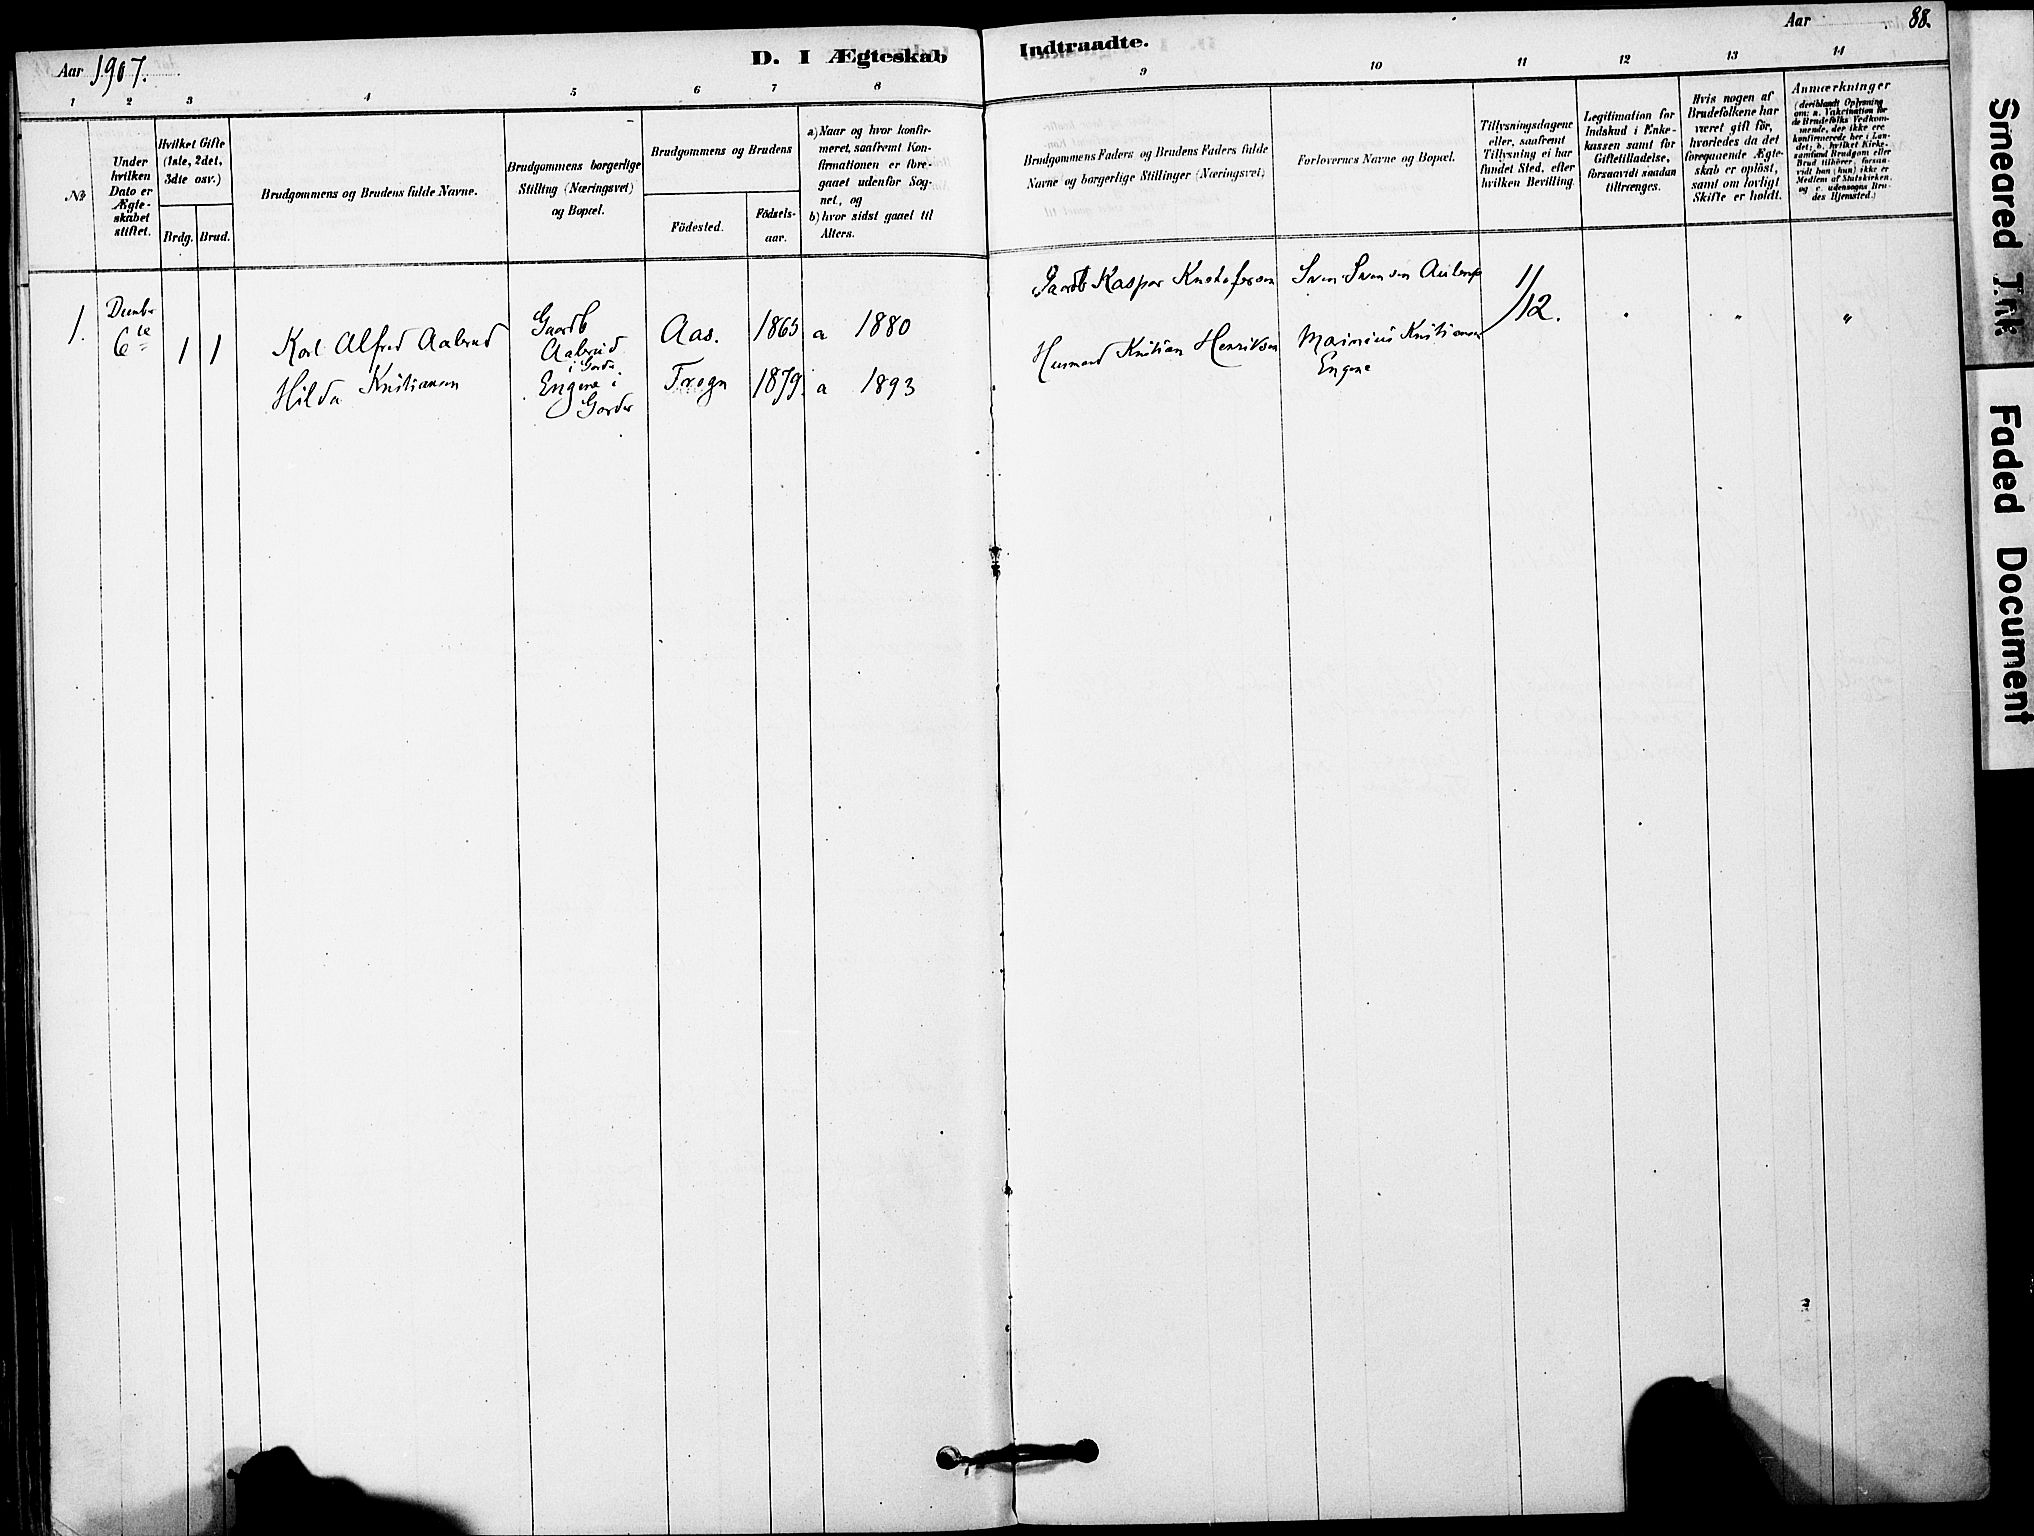 Aar 1907.
D. I Ægteskab Indtraadte.
Aar 88.
1 2 3 4 5 6 7 8 9 10 11 12 13 14
No
Under hvilken Dato er Ægte- skabet stiftet.
Hvilket Gifte (1ste, 2det, 3dte osv.)
Brdg. Brud.
Brudgommens og Brudens fulde Navne.
Brudgommens borgerlige Stilling (Næringsvei) og Bopæl.
Brudgommens og Brudens
Födested.
Födsels- aar.
a) Naar og hvor konfir- meret, saafremt Kon- firmationen er fore- gaaet udenfor Sog- net, og
b) hvor sidst gaaet til Alters.
Brudgommens Faders og Brudens Faders fulde
Navne og borgerlige Stillinger (Næringsvei)
Forlovernes Navne og Bopæl.
Tillysningsdagene eller, saafremt Tillysning ei har fundet Sted, efter hvilken Bevilling.
Legitimation for Indskud i Enke- kassen samt for Giftetilladelse, forsaavidt saadan tiltrænges.
Hvis nogen af Brudefolkene har været gift för, hvorledes da det foregaaende Ægte- skab er oplöst, samt om lovligt Skifte er holdt.
Anmærkninger
(deriblandt Oplysning om: a. Vakcination for de Brudefolks Vedkom- mende, der ikke ere konfirmerede her i Lan- det; b. hvilket Kirke- samfund Brudgom eller Brud tilhörer, forsaa- vidt han (hun) ikke er Medlem af Statskirken, og c. udensogns Bru- des Hjemsted.)
1. 6te 1 1
Karl Alfred Aalerud
Gaardb Aalerud i Garder
Aas. 1865 a 1880
Gaardb Kaspar Kristofersen
Sven Svensen
1/12. " "
Hilda Kristiansen
Engene i Garder
Frogn 1879. a 1893
Husmand Kristian Henriksen
Kristiansen
Engene
Smeared Ink
Faded Document